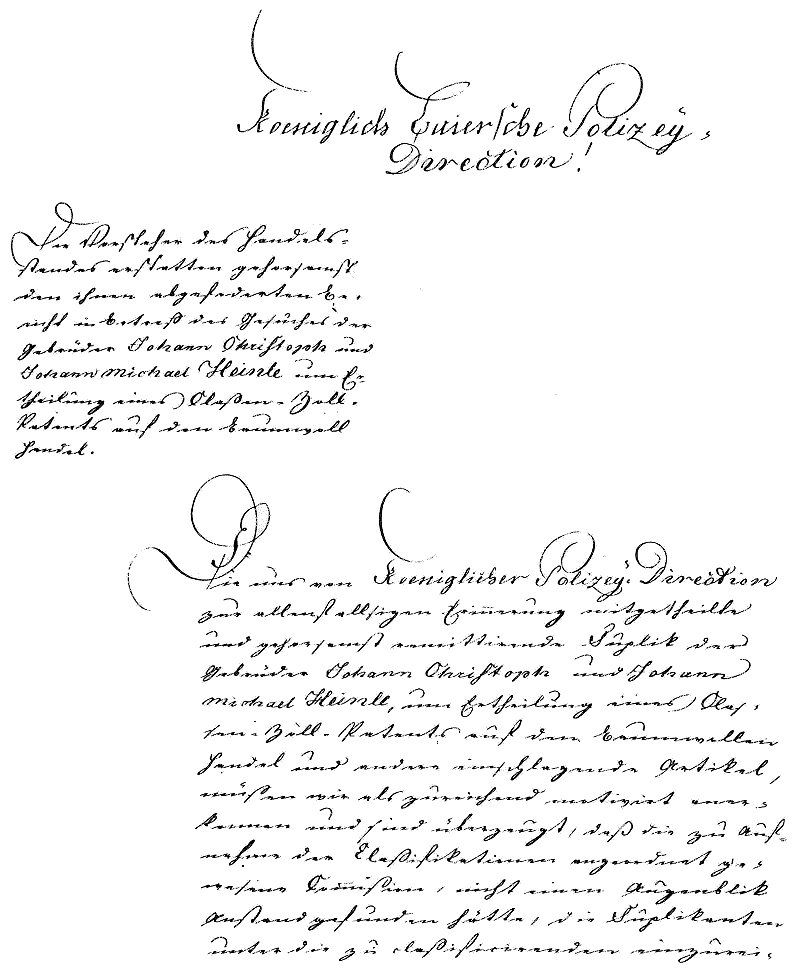 Koeniglich Baiersche Polizeÿ-
Direction!
Die Vorsteher des Handels-
standes erstatten gehorsamst
den ihnen abgefoderten Be-
richt in betreff des Gesuches der
Gebrüder Johann Christoph und
Johann Michael Heinle um Er-
theilung eines Classen-Zoll-
Patents auf den Baumwoll
Handel.
Die uns von Koeniglicher Polizeÿ-Direction
zur allenfallsigen Erinnerung mitgetheilte
und gehorsamst remittirende Suplik der
Gebrüder Johann Christoph und Johann
Michael Heinle, um Ertheilung eines Clas-
sen-Zoll-Patents auf den Baumwollen
Handel und andere einschlagende Artikel,
müßen wir als zureichend motivirt aner-
kennen und sind überzeugt, daß die zu Auf-
nahme der Claßifikationen angeordnet ge-
wesene Commißion, nicht einen Augenblik
Anstand gefunden hätte, die Suplikanten
unter die zu claßificirenden einzurei-